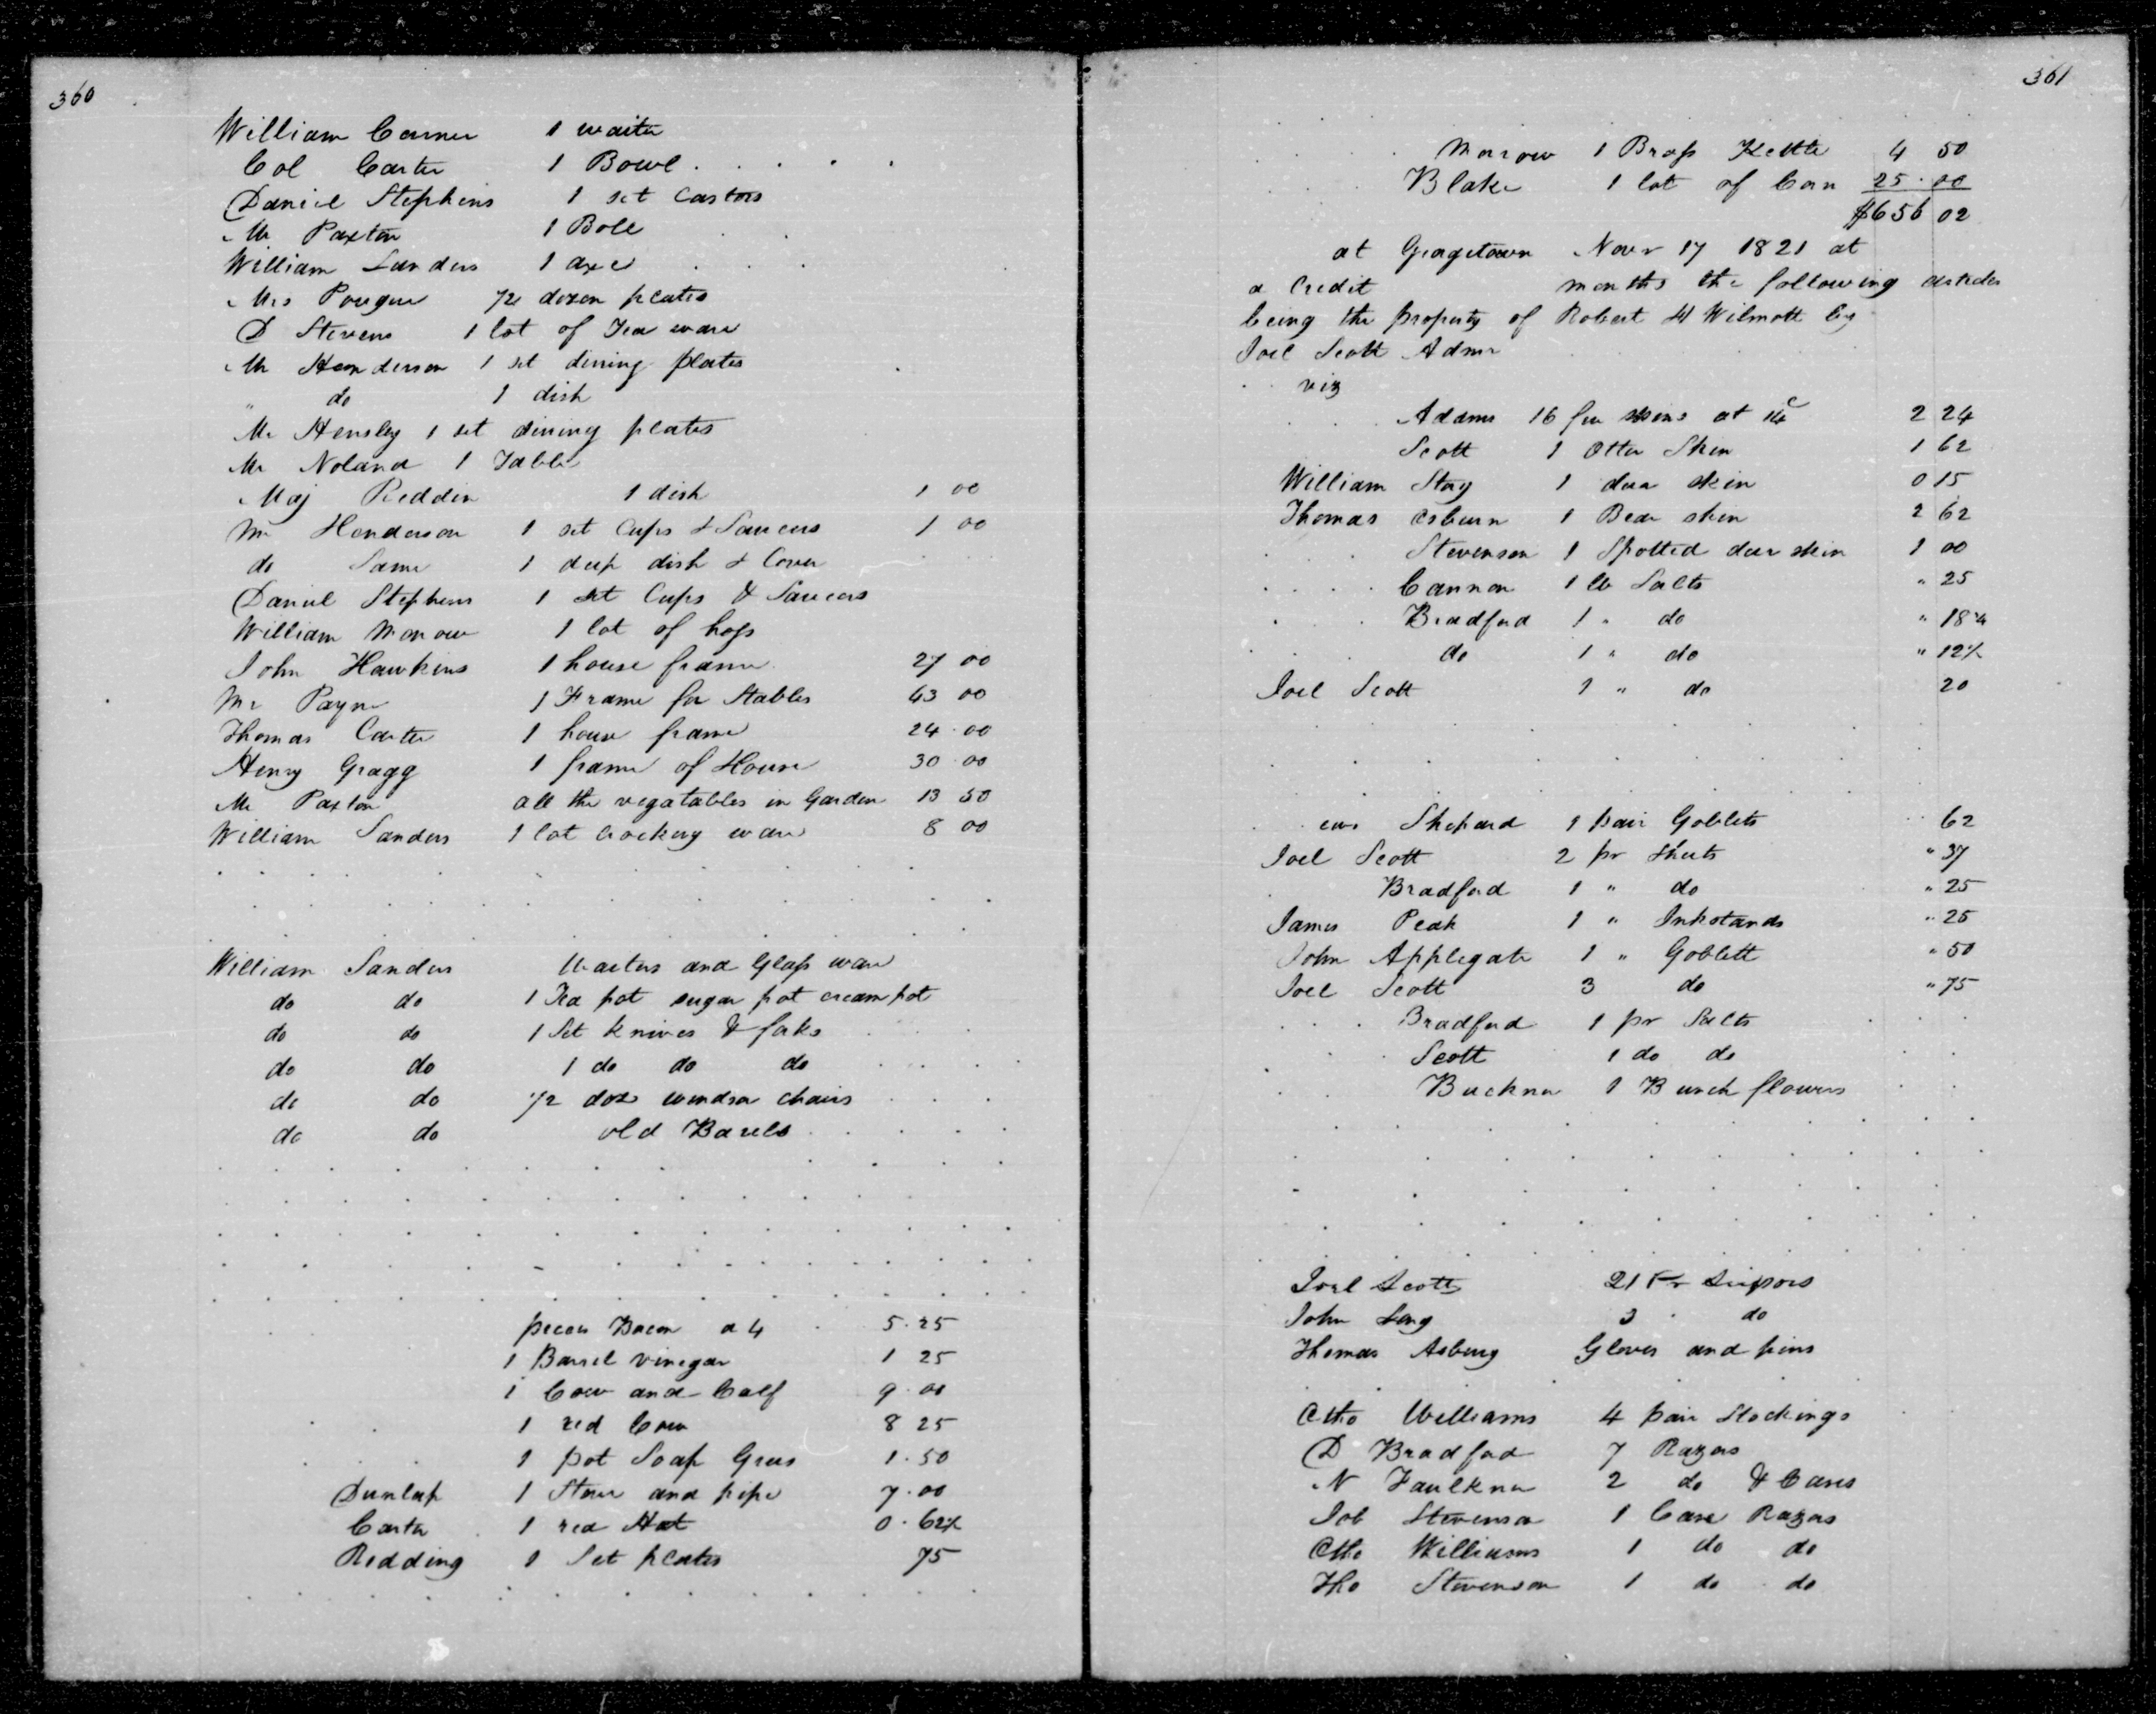 360
William Carner 1 waiter
Col Carter 1 Bowl
Daniel Stephens 1 set Castors
Mr Paxton 1 Bole
William Sanders 1 axe
Mrs Pougue 1/2 dozen plates
D Stevens 1 lot of Tea ware
Mr Henderson 1 set dining plates
" do 1 dish
Mr Hensley 1 set dining plates
Mr Noland 1 Table
Maj Reddin 1 dish 1 00
Mr Henderson 1 set Cups & Saucers 1 00
do Same 1 deep dish & Cover
Daniel Stephens 1 set Cups & Saucers
William Morrow 1 lot of hogs
John Hawkins 1 house frame 27 00
Mr Payne 1 Frame for Stables 43 00
Thomas Carter 1 house frame 24.00
Henry Gragg 1 frame of House 30.00
Mr Paxton all the vegatables in Garden 13 50
William Sanders 1 lot crockery ware 8 00
William Sanders Waiters and Glass ware
do do 1 Tea pot sugar pot cream pot
do do 1 Set knives & forks
do do 1 do do do
do do 1/2 doz windsor chairs
do do old Barels
peces Bacon a 4 5.25
1 Barrel vinegar 1 25
1 Cow and Calf 9.00
1 red Cow 8 25
1 pot Soap Grees 1.50
Dunlap 1 Stove and pipe 7.00
Carter 1 red Hat 0.62½
Redding 1 Set plates 75
361
Morrow 1 Brass Kettle 4 50
Blake 1 lot of Corn 25.00
$656 02
at Georgetown Novr 17 1821 at
a Credit months the following articles
being the property of Robert W Wilmott by
Joel Scott Admr
viz
Adams 16 fur skins at 14c 2 24
Scott 1 Otter Skin 1 62
William Story 1 deer skin 0 15
Thomas Osburn 1 Bear skin 2 62
Stevenson 1 Spotted deer skin 1 00
Cannon 1 lb Salts " 25
Bradford 1 " do " 18¾
do 1 " do " 12½
Joel Scott 1 " do 20
Shepard 1 pair Goblets 62
Joel Scott 2 pr Sheets " 37
Bradford 1 " do " 25
James Peak 1 " Inkstands " 25
John Applegate 1 " Goblett " 50
Joel Scott 3 do " 75
Bradford 1 pr Salts
Scott 1 do do
Buckner 1 Bunch flowers
Joel Scott 21 Pr Scissors
John Long 3 " do
Thomas Asbury Gloves and pins
Otho Williams 4 pair Stockings
D Bradford 7 Razors
N Faulkner 2 do & Cases
Job Stevenson 1 Case Razors
Otho Williams 1 do do
Tho Stevenson 1 do do